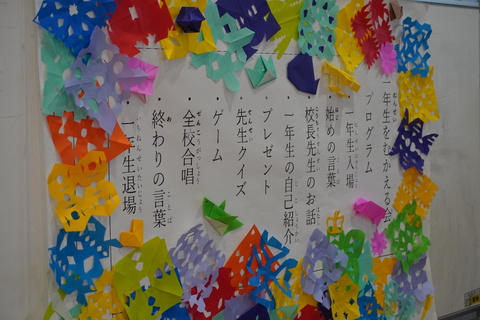 一年生をむかえる会
プログラム
・一年生入場
・始めの言葉
・校長先生のお話
・一年生の自己紹介
・プレゼント
・先生クイズ
・ゲーム
・全校合唱
・終わりの言葉
・一年生退場